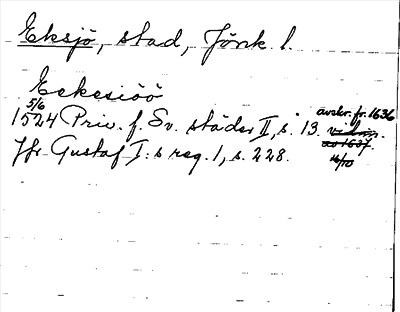 Eksjö, stad, Jönk. l.
Eckesiöö
5/6
1524 Priv. f. Sv. städer II, s. 13. avskr. fr. 1636
vidim.
av 1637.
Jfr Gustaf I:s reg. 1, s. 228.